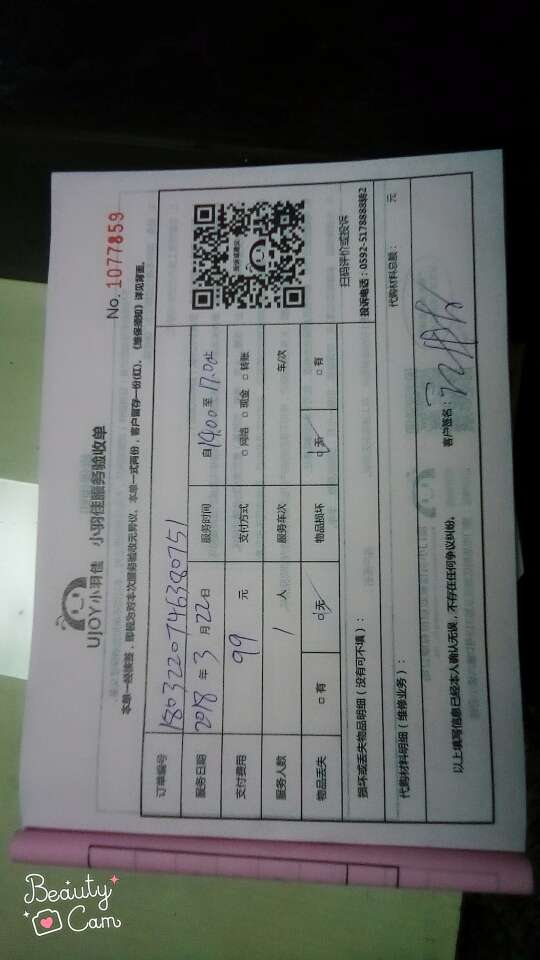 UJOY小羽佳 小羽佳服务验收单
No. 1077859
本单一经接签，即视为对本次服务验收无异议。本单一式两份，客户留存一份(红)，《维保须知》详见背面。
订单编号 1803220746380751
服务日期 2018 年 3 月 22 日 服务时间 自 14.00 至 17.00止
支付费用 99 元 支付方式 □ 网络 □ 现金 □ 转账
服务人数 1 人 服务车次 车/次
物品丢失 □ 有 □ 无 物品损坏 □ 无 □ 有
扫码评价或投诉
投诉电话：0592-5178888转2
损坏或丢失物品明细（没有可不填）：
代购材料明细（维修业务）： 代购材料总额： 元
以上填写信息已经本人确认无误，不存在任何争议纠纷。 客户签名：
Beauty
Cam